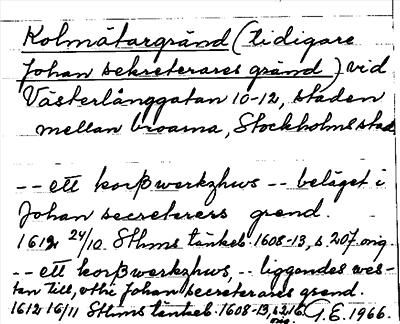 Kolmätargränd (tidigare
Johan sekreterares gränd) vid
Västerlånggatan 10-12, staden
mellan broarna, Stockholms stad
-- ett korßwerkzhws -- beläget i
Johan secreterers grend.
1612 24/10. Sthms tänkeb. 1608-13, s. 207. orig.
-- ett korßwerkzhws, -- liggendes wes-
tan till, vthi Johan secreterares grend.
1612 16/11 Sthms tänkeb. 1608-13, s. 216. orig. G.E. 1966.